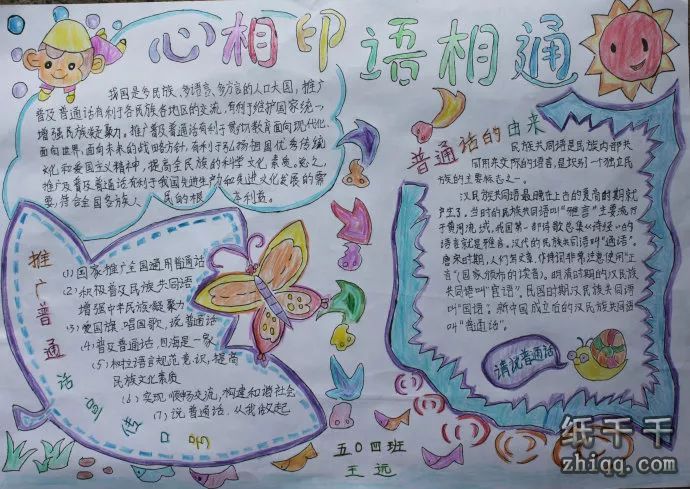 心相印 语相通
我国是多民族、多语言、多方言的人口大国,推广
普及普通话有利于各民族各地区的交流,有利于维护国家统一,
增强民族凝聚力。推广普及普通话有利于贯彻教育面向现代化、
面向世界、面向未来的战略方针,有利于弘扬祖国优秀传统
文化和爱国主义精神,提高全民族的科学文化素质。总之,
推广及普及普通话有利于我国先进生产力和先进文化发展的需
要,符合全国各族人民的根本利益。
推广普通话宣传口号
(1)国家推广全国通用普通话
(2)积极普及民族共同语
增强中华民族凝聚力
(3)爱国旗、唱国歌、说普通话
(4)普及普通话,四海是一家
(5)树立语言规范意识,提高
民族文化素质
(6)实现顺畅交流,构建和谐社会
(7)说普通话,从我做起
普通话的由来
民族共同语是民族内部共
同用来交际的语言,是识别一个独立民
族的主要标志之一。
汉民族共同语最晚在上古的夏商时期就
产生了,当时的民族共同语叫“雅言”主要流行
于黄河流域,我国第一部诗歌总集《诗经》的
语言就是雅言。汉代的民族共同语叫“通语”。
唐宋时期,人们写文章、作诗词非常注意使用“正
言”(国家颁布的读音)。明清时期的汉民族
共同语叫“官话”。民国时期汉民族共同语叫
“国语”。新中国成立后的汉民族共同语
叫“普通话”。
请说普通话
五〇四班
王远
纸千千
zhiqq.com